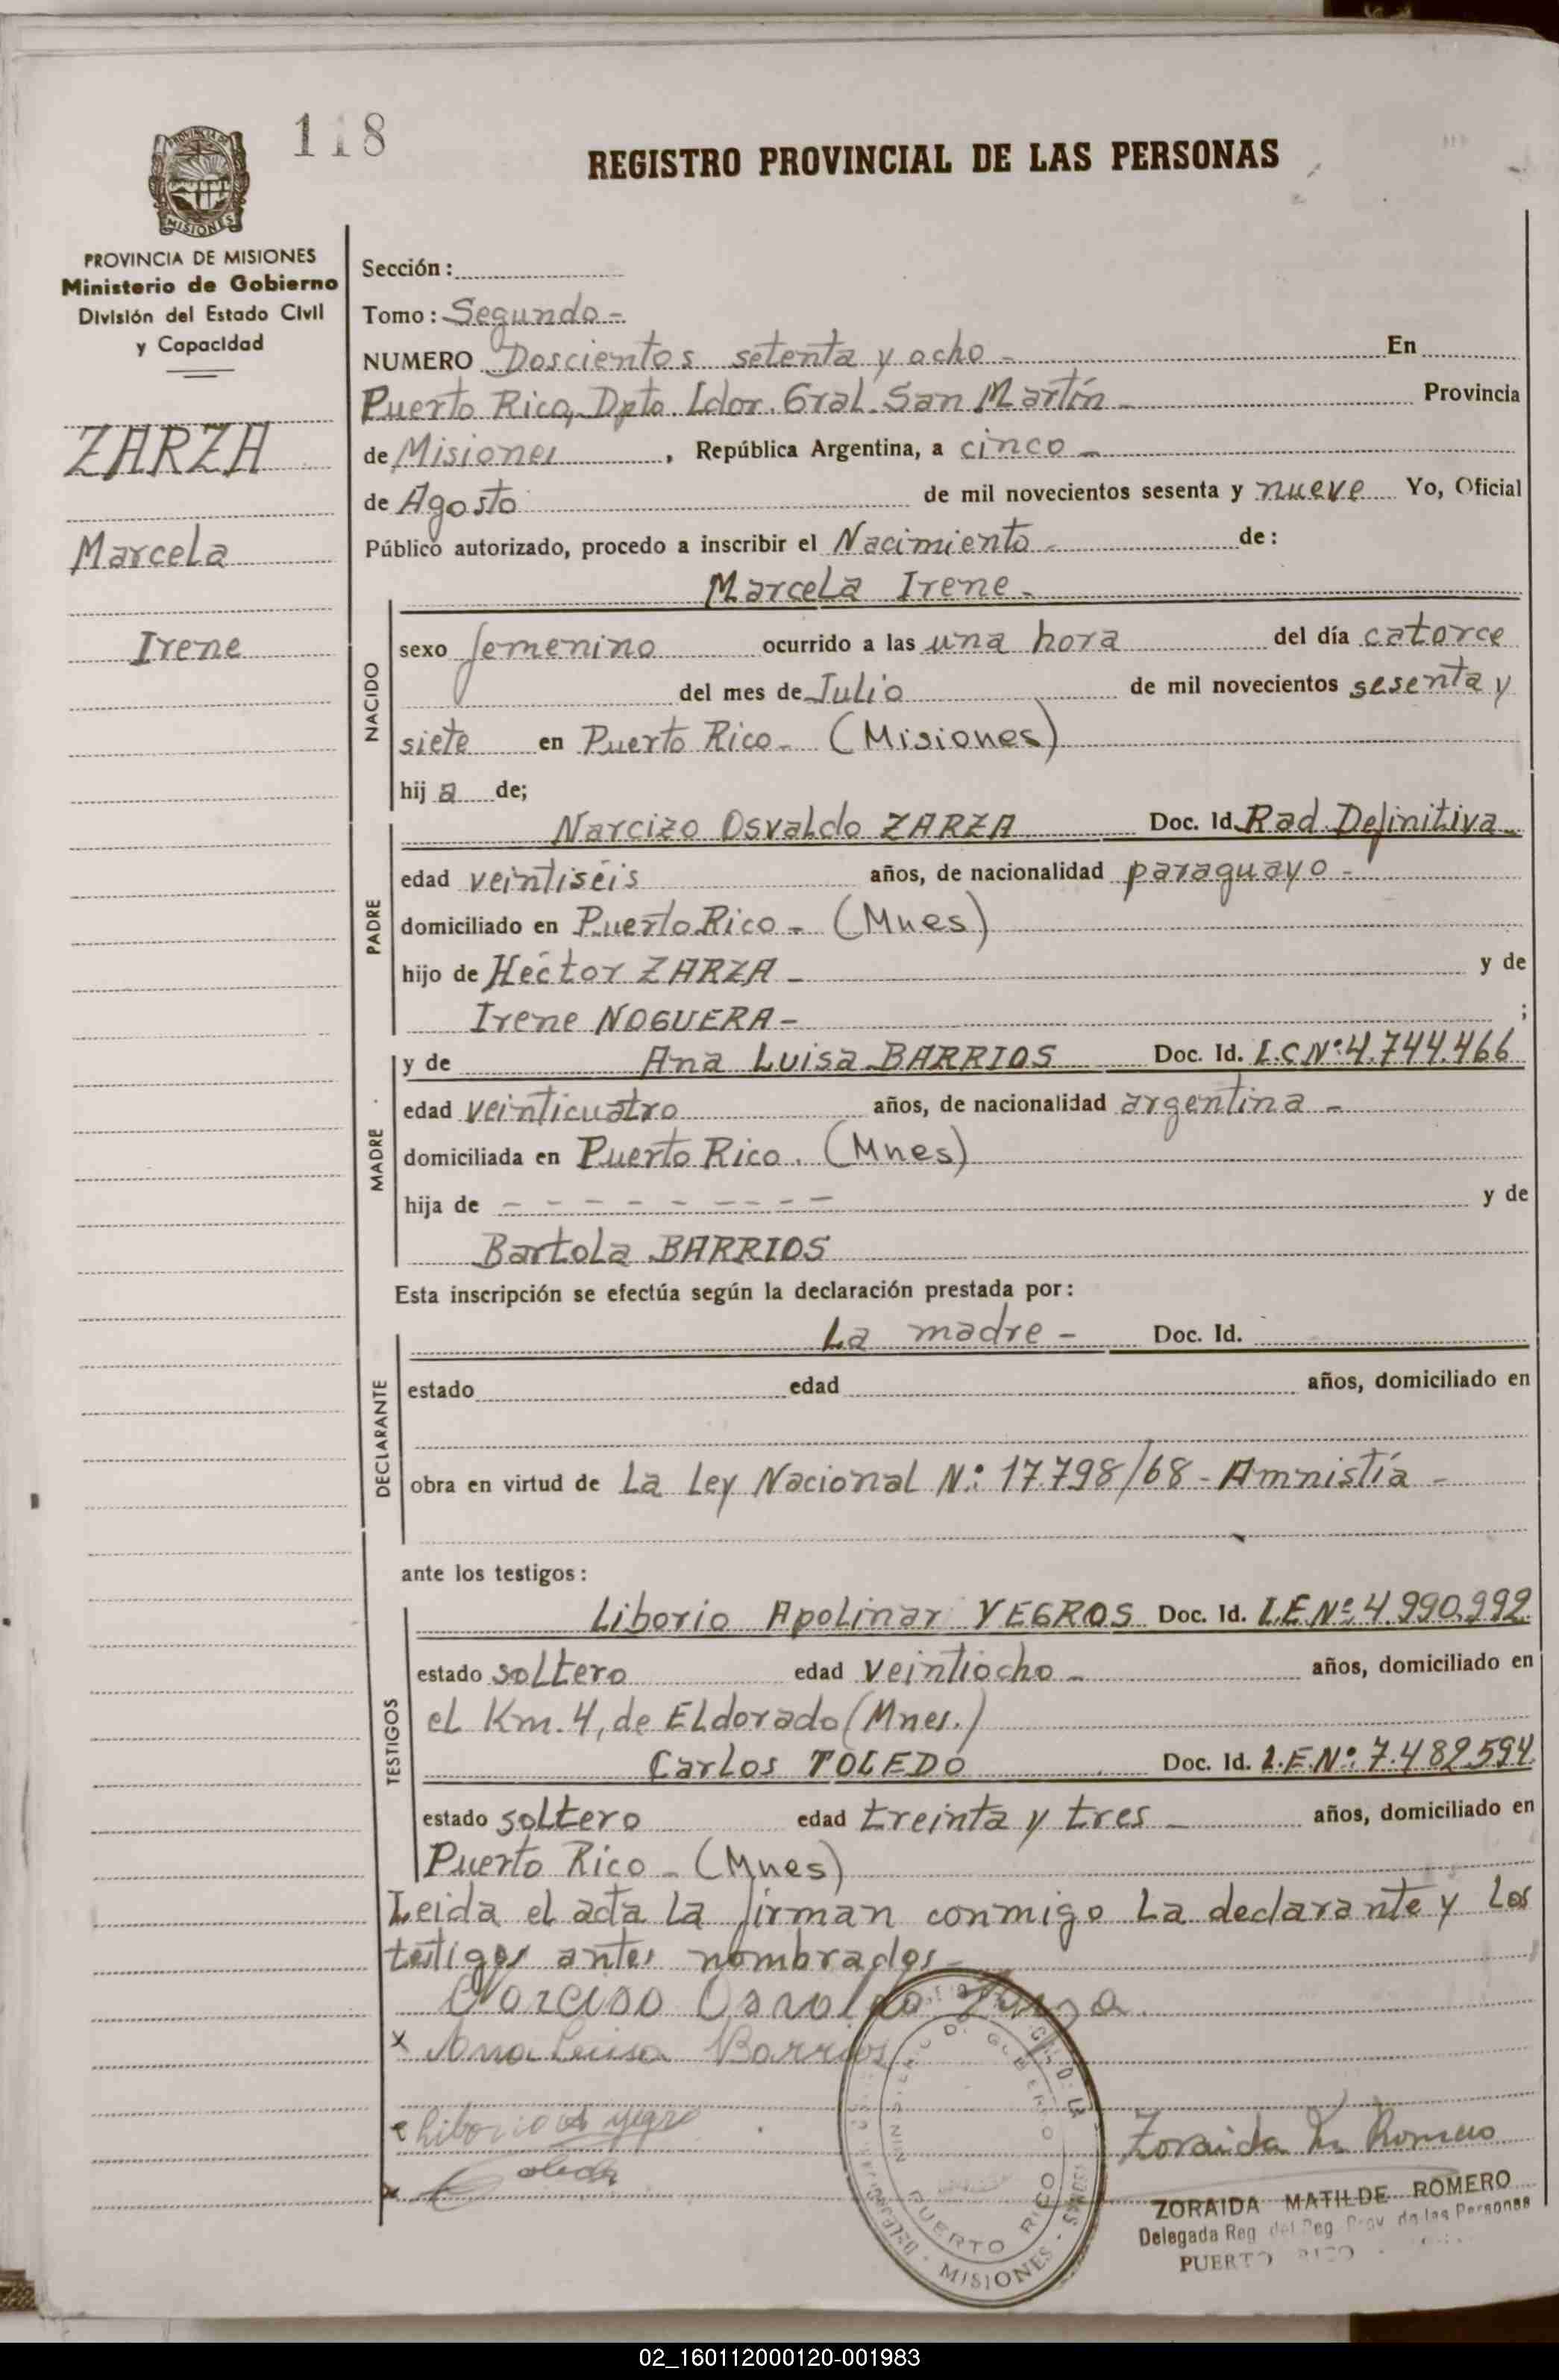 118
REGISTRO PROVINCIAL DE LAS PERSONAS
PROVINCIA DE
MISIONES
PROVINCIA DE MISIONES
Ministerio de Gobierno
División del Estado Civil
y Capacidad
ZARZA
Marcela
Irene
Sección:
Tomo: Segundo -
NUMERO Doscientos setenta y ocho - En
Puerto Rico, Dpto. Ldor. Gral. San Martín - Provincia
de Misiones, República Argentina, a cinco -
de Agosto de mil novecientos sesenta y nueve Yo, Oficial
Público autorizado, procedo a inscribir el Nacimiento - de:
Marcela Irene -
NACIDO
sexo femenino ocurrido a las una hora del día catorce
del mes de Julio de mil novecientos sesenta y
siete en Puerto Rico - (Misiones)
hija de;
PADRE
Narcizo Osvaldo ZARZA Doc. Id. Rad. Definitiva -
edad veintiséis años, de nacionalidad paraguayo -
domiciliado en Puerto Rico - (Mnes)
hijo de Héctor ZARZA - y de
Irene NOGUERA - ;
MADRE
y de Ana Luisa BARRIOS Doc. Id. L.C.Nº: 4.744.466
edad veinticuatro años, de nacionalidad argentina -
domiciliada en Puerto Rico. (Mnes)
hija de - - - - - - - - - y de
Bartola BARRIOS
Esta inscripción se efectúa según la declaración prestada por:
DECLARANTE
La madre - Doc. Id.
estado edad años, domiciliado en
obra en virtud de La Ley Nacional N.: 17.798/68 - Amnistía -
ante los testigos:
TESTIGOS
Liborio Apolinar YEGROS Doc. Id. L.E.Nº: 4.990.992.
estado soltero edad veintiocho - años, domiciliado en
el Km. 4, de Eldorado (Mnes.)
Carlos TOLEDO Doc. Id. L.E.Nº: 7.482.594.
estado soltero edad treinta y tres - años, domiciliado en
Puerto Rico - (Mnes)
Leida el acta la firman conmigo la declarante y los
testigos antes nombrados -
Narciso Osvaldo Zarza
x Ana Luisa Barrios
Liborio A yegro
x Toledo
MINISTERIO DE GOBIERNO
PUERTO RICO
MISIONES
Zoraida M Romero
ZORAIDA MATILDE ROMERO
Delegada Reg del Reg Prov de las Personas
PUERTO RICO
02_160112000120-001983